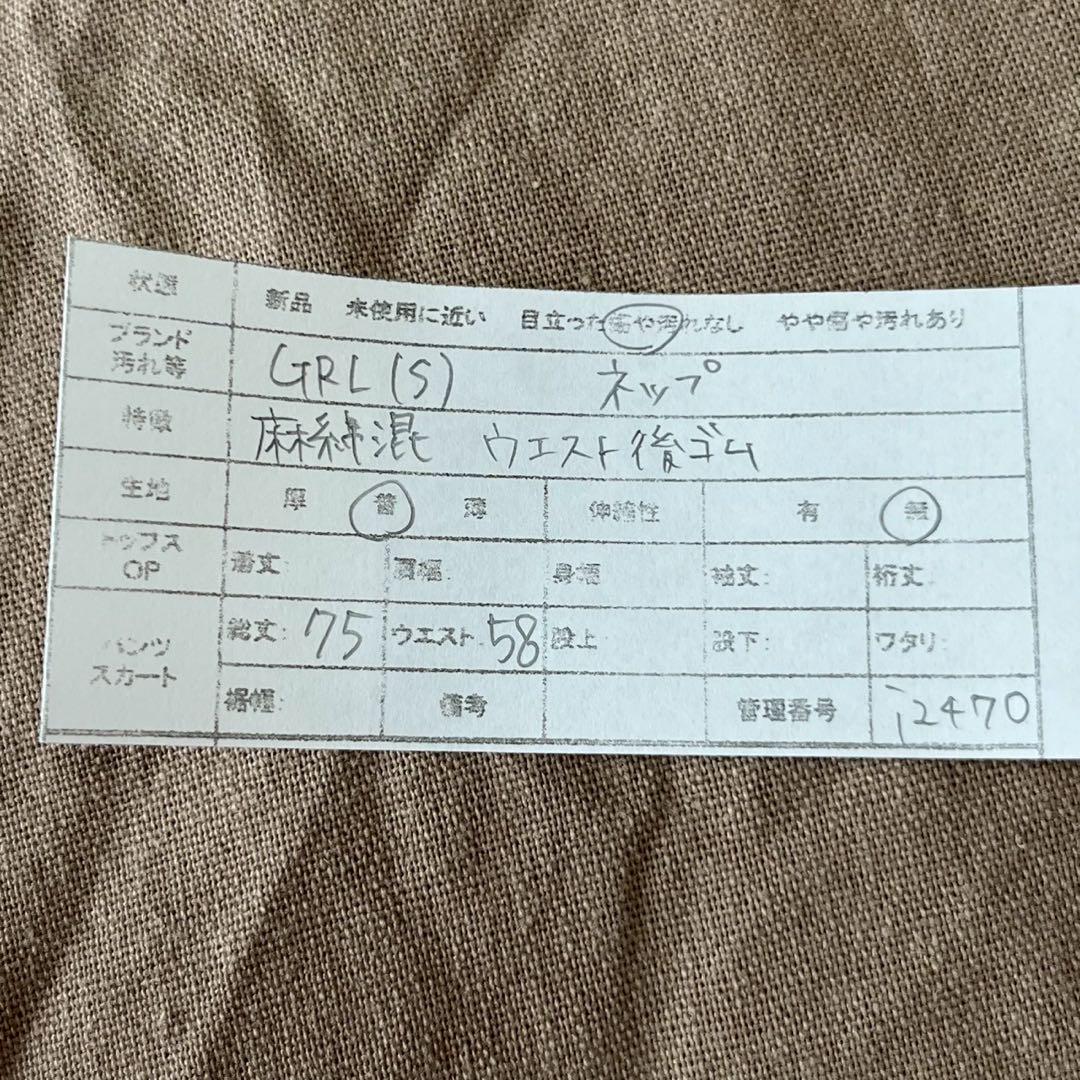 状態 新品 未使用に近い 目立った傷や汚れなし やや傷や汚れあり
ブランド
汚れ等 GRL(S) ネップ
特徴 麻綿混 ウエスト後ゴム
生地 厚 普 薄 伸縮性 有 無
トップス
OP 着丈: 肩幅: 身幅 袖丈: 裄丈
パンツ
スカート 総丈: 75 ウエスト: 58 股上 股下: ワタリ:
裾幅: 備考 管理番号 i2470